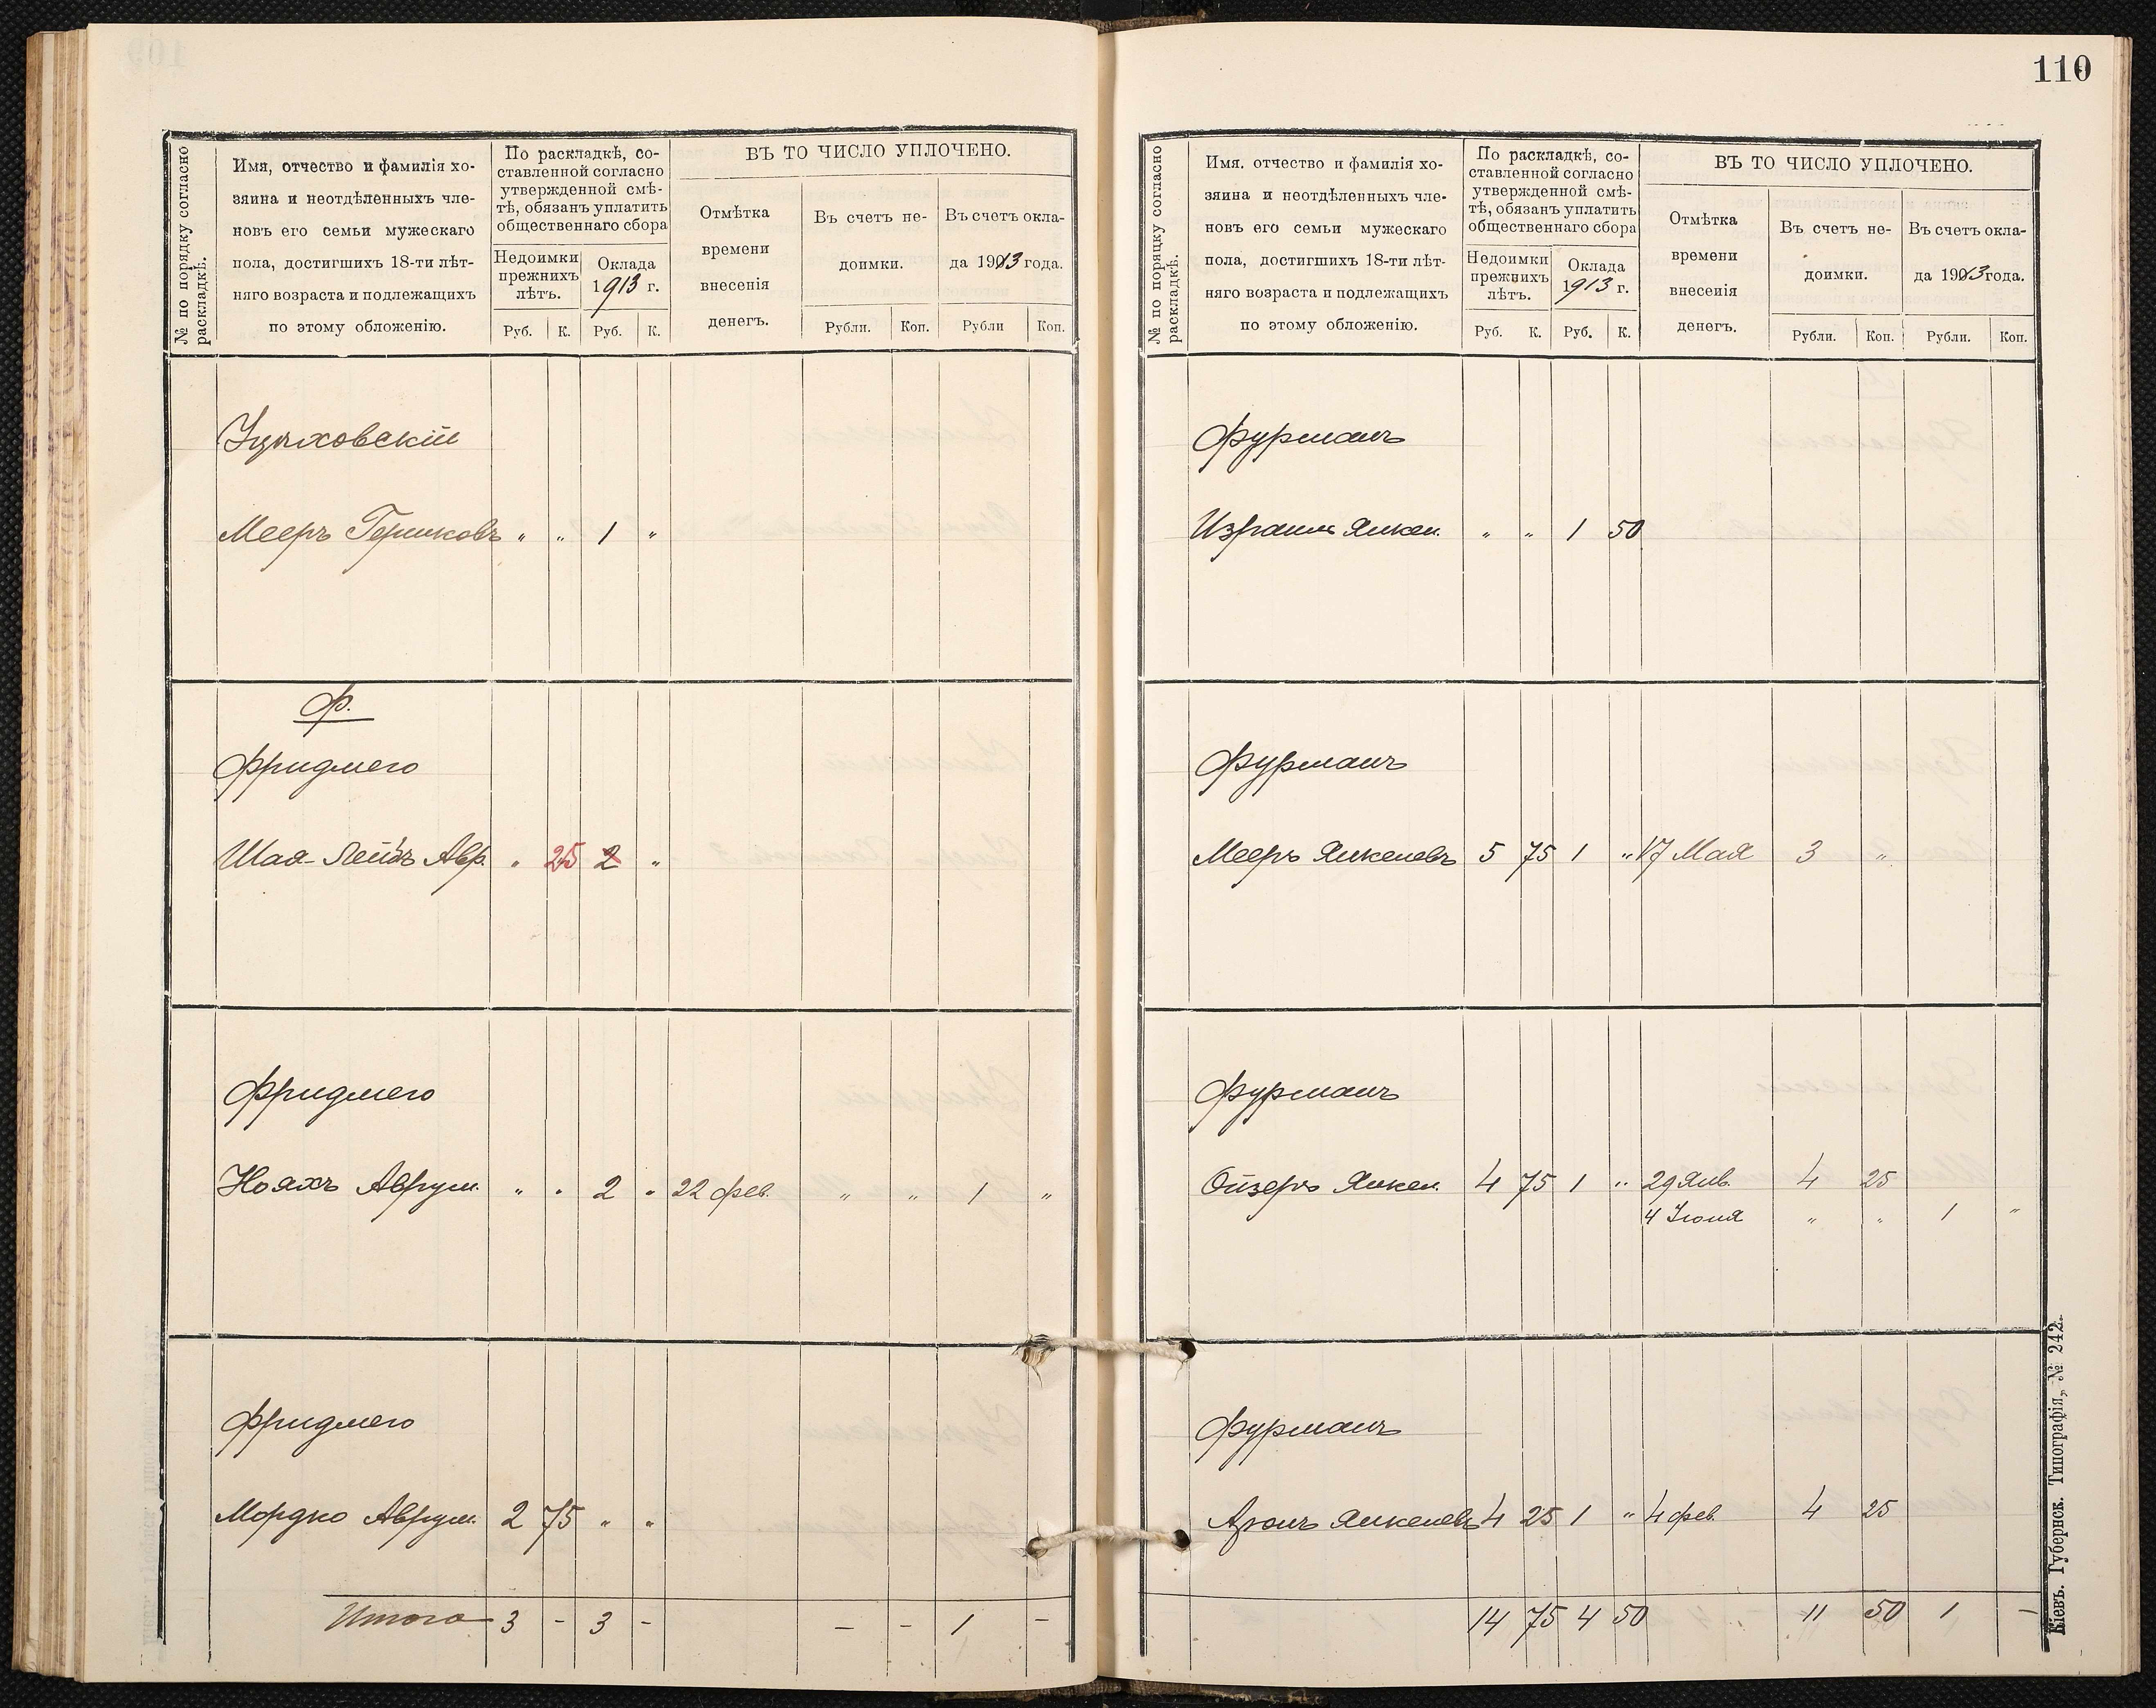 110
№ по порядку согласно раскладкѣ.
Имя, отчество и фамилія хо-
зяина и неотдѣленныхъ чле-
новъ его семьи мужескаго
пола, достигшихъ 18-ти лѣт-
няго возраста и подлежащихъ
по этому обложенію.
По раскладкѣ, со-
ставленной согласно
утвержденной смѣ-
тѣ, обязанъ уплатить
общественнаго сбора
Недоимки прежнихъ лѣтъ.
Оклада 1913 г.
Руб. К. Руб. К.
ВЪ ТО ЧИСЛО УПЛОЧЕНО.
Отмѣтка
времени
внесенія
денегъ.
Въ счетъ не-
доимки.
Въ счетъ окла-
да 1913 года.
Рубли. Коп. Рубли Коп.
Мееръ Гершковъ " " 1 "
Ф.
Фридмего
Шая-Лейбъ Авр. " 25 2 "
Фридмего
Нояхъ Аврум. " " 2 " 22 фев. " " 1 "
Фридмего
Мордко Аврум. 2 75 " "
Итого 3 - 3 - - - 1 -
№ по поряцку согласно раскладкѣ.
Имя. отчество и фамилія хо-
зяина и неотдѣленныхъ чле-
новъ его семьи мужескаго
пола, достигшихъ 18-ти лѣт-
няго возраста и подлежащихъ
по этому обложенію.
По раскладкѣ, со-
ставленной согласно
утвержденной смѣ-
тѣ, обязанъ уплатить
общественнаго сбора
Недоимки прежнихъ лѣтъ.
Оклада 1913 г.
Руб. К. Руб. К.
ВЪ ТО ЧИСЛО УПЛОЧЕНО.
Отмѣтка
времени
внесенія
денегъ.
Въ счетъ не-
доимки.
Въ счетъ окла-
да 1913 года.
Рубли. Коп. Рубли. Коп.
Фурманъ
Израиль Янкел. " " 1 50
Фурманъ
Мееръ Янкелевъ 5 75 1 " 17 Мая 3 "
Фурманъ
Ойзеръ Янкел. 4 75 1 " 29 Янв. 4 25
4 Іюня " " 1 "
Фурманъ
Аронъ Янкелевъ 4 25 1 " 4 фев. 4 25
14 75 4 50 11 50 1 -
Кіевъ. Губернск. Типографія, № 242.